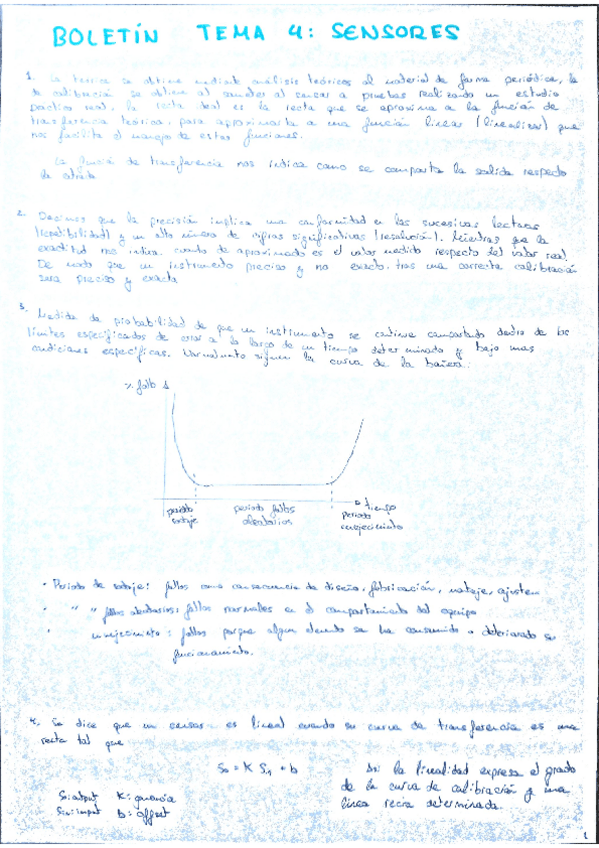 BOLETÍN TEMA 4: SENSORES
1. La teórica se obtiene mediante análisis teóricos del material de forma periódica, la
de calibración se obtiene al someter al sensor a pruebas realizando un estudio
práctico real, la recta ideal es la recta que se aproxima a la función de
transferencia teórica, para aproximarla a una función lineal (linealizar) que
nos facilite el manejo de estas funciones.
La función de transferencia nos indica como se comporta la salida respecto
la entrada
2. Decimos que la precisión implica una conformidad en las sucesivas lecturas
(repetibilidad) y un alto número de cifras significativas (resolución). Mientras que la
exactitud nos indica cuanto de aproximado es el valor medido respecto del valor real.
De modo que un instrumento preciso y no exacto, tras una correcta calibración
será preciso y exacto
3. Medida de probabilidad de que un instrumento se continue comportando dentro de los
límites especificados de error a lo largo de un tiempo determinado y bajo unas
condiciones específicas. Normalmente siguen la curva de la bañera.
% fallo
tiempo
periodo
montaje
periodo fallos
aleatorios
periodo
envejecimiento
• Periodo de montaje: fallos como consecuencia de diseño, fabricación, montaje, ajustes
• " " fallos aleatorios: fallos normales en el comportamiento del equipo
• envejecimiento: fallos porque algun elemento se ha consumido o deteriorado su
funcionamiento.
4. Se dice que un sensor es lineal cuando su curva de transferencia es una
recta tal que
So = K Si + b
So: output K: ganancia
Si: input b: offset
la linealidad expresa el grado
de la curva de calibración y una
línea recta determinada.
1